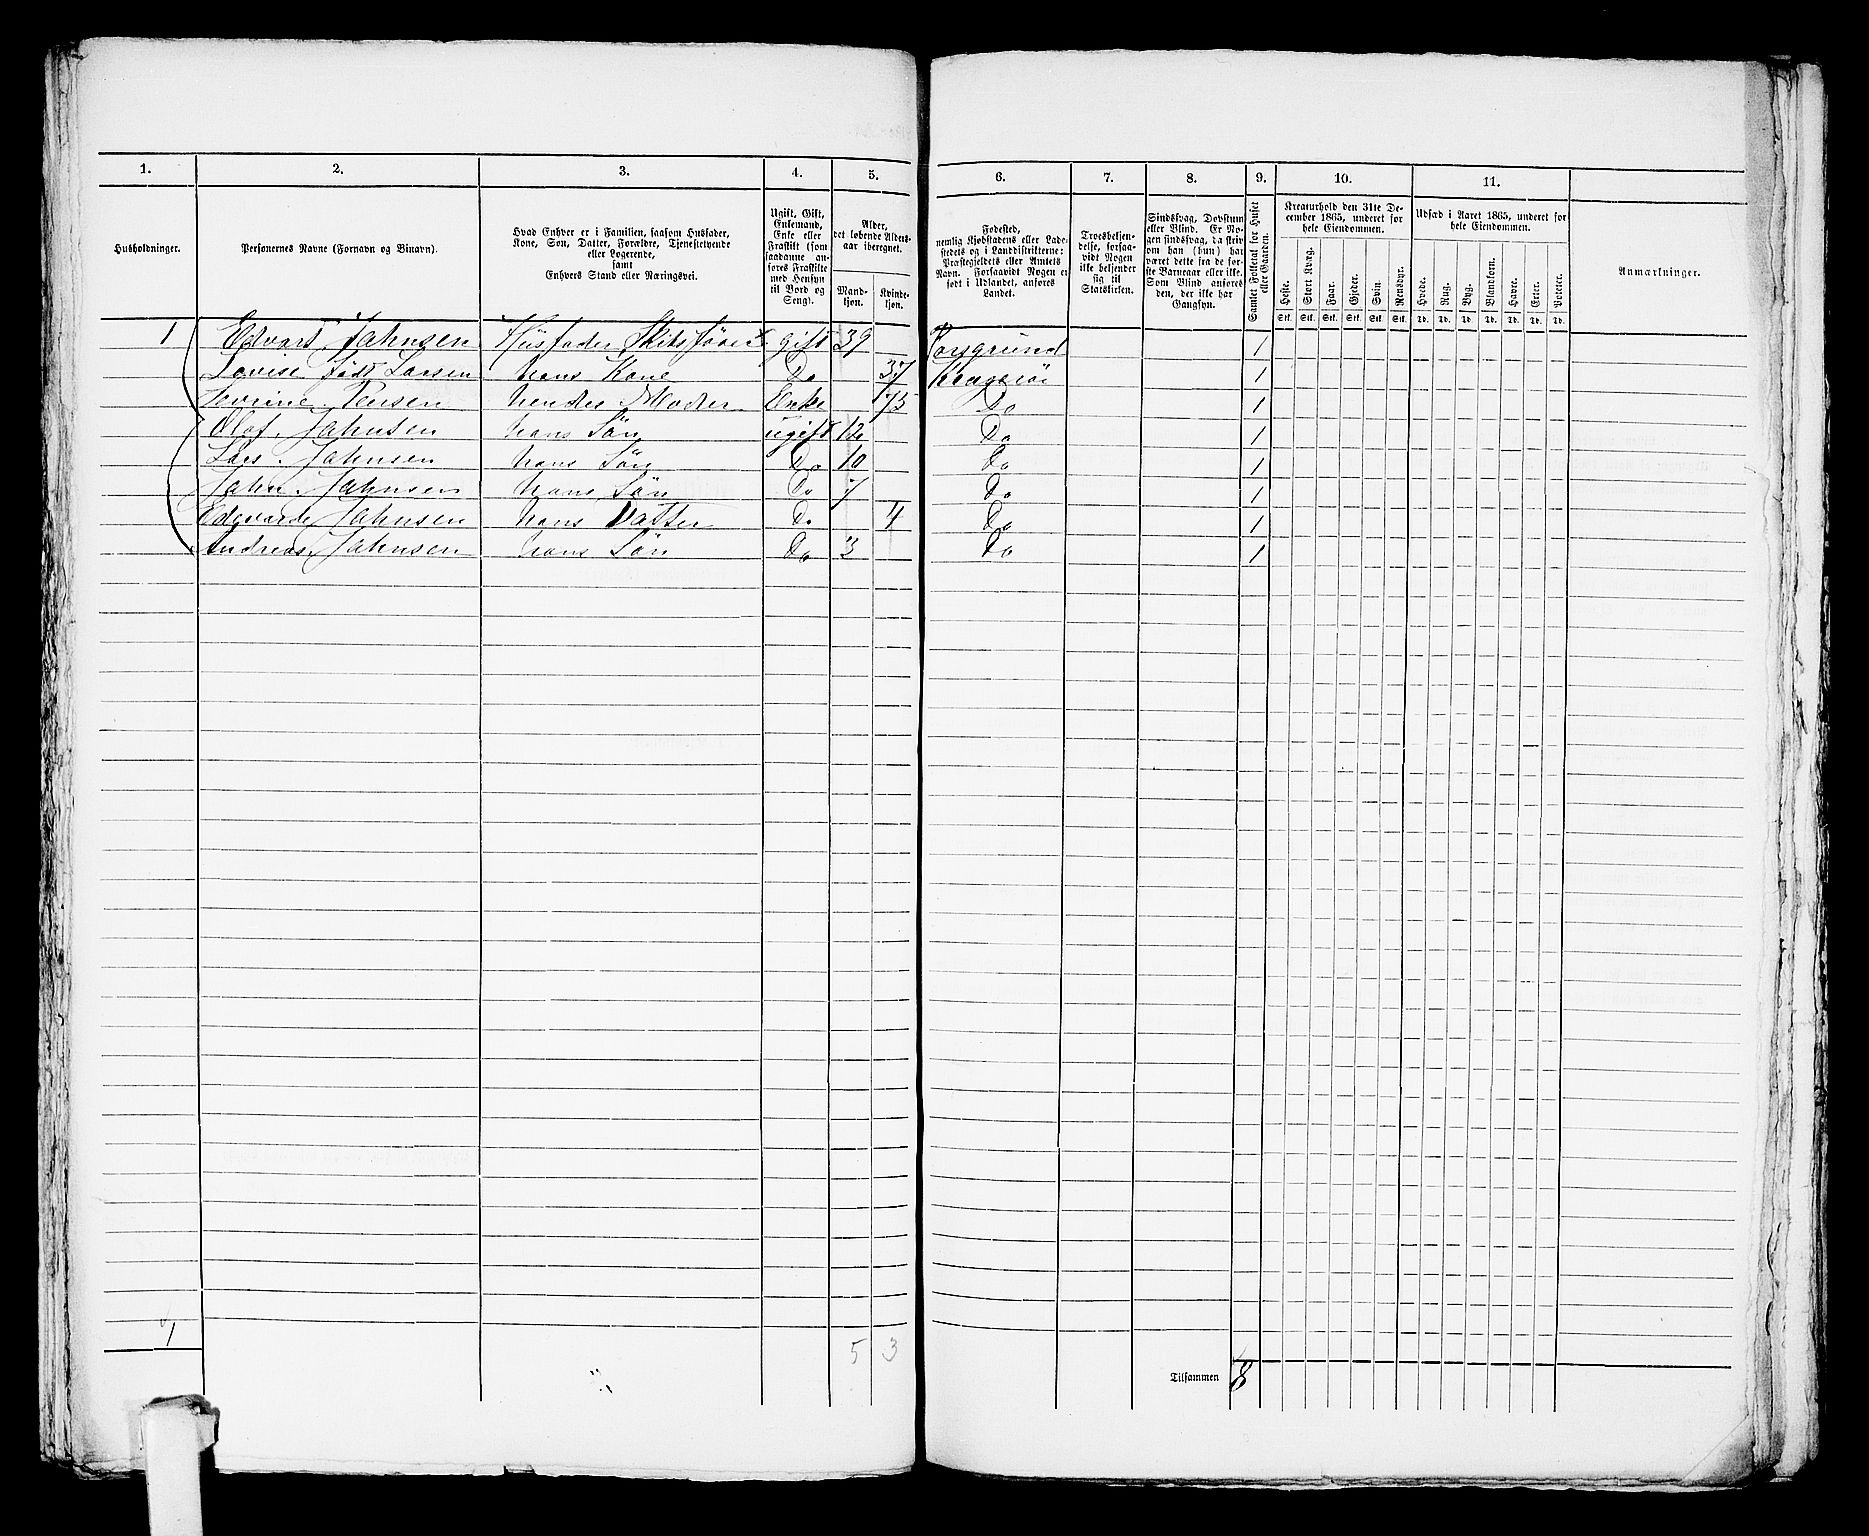 1. 2. 3. 4. 5. 6. 7. 8. 9. 10. 11.
Husholdninger.
Personernes Navne (Fornavn og Binavn).
Hvad Enhver er i Familien, saasom Husfader,
Kone, Søn, Datter, Forældre, Tjenestetyende
eller Logerende,
samt
Enhvers Stand eller Næringsvei.
Ugift, Gift,
Enkemand,
Enke eller
Fraskilt (som
saadanne an-
føres Fraskilte
med Hensyn
til Bord og
Seng).
Alder,
det løbende Alders-
aar iberegnet.
Mand-
kjøn.
Kvinde-
kjøn.
Fødested,
nemlig Kjøbstadens eller Lade-
stedets og i Landdistrikterne:
Præstegjeldets eller Amtets
Navn. Forsaavidt Nogen er
født i Udlandet, anføres
Landet.
Troesbekjen-
delse, forsaa-
vidt Nogen
ikke bekjender
sig til
Statskirken.
Sindssvag, Døvstum
eller Blind. Er No-
gen sindssvag, da skriv
om han (hun) har
været dette fra de før-
ste Barneaar eller ikke.
Som Blind anføres
den, der ikke har
Gangsyn.
Samlet Folketal for Huset
eller Gaarden.
Kreaturhold den 31te De-
cember 1865, underet for
hele Eiendommen.
Heste. Stort Kvæg. Faar. Gjeder. Svin. Rensdyr.
Stk. Stk. Stk. Stk. Stk. Stk.
Udsæd i Aaret 1865, underet for
hele Eiendommen.
Hvede. Rug. Byg. Blandkorn. Havre. Erter. Poteter.
Td. Td. Td. Td. Td. Td. Td.
Anmærkninger.
1 Edvart Jahnsen Huusfader, Skibsfører gift 39 Porsgrund 1
Lovise født Larsen hans Kone Do 37 Kragerøe 1
Jensen hendes Moder Enke 75 Do 1
Olaf. Jahnsen hans Søn ugift 12 Do 1
Lars. Jahnsen hans Søn Do 10 Do 1
Jahn. Jahnsen hans Søn Do 7 Do 1
Edevarde Jahnsen hans Datter Do 4 Do 1
Andreas. Jahnsen hans Søn Do 3 Do 1
1
5 3
Tilsammen 8